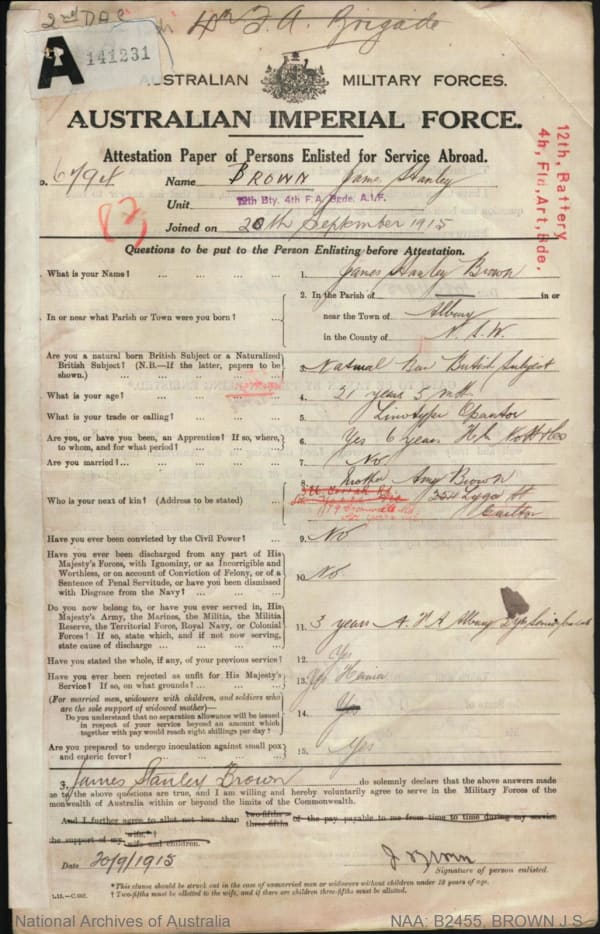 2nd DAC
4th F.A. Brigade
A
141231
AUSTRALIAN MILITARY FORCES.
AUSTRALIAN IMPERIAL FORCE.
Attestation Paper of Persons Enlisted for Service Abroad.
12th, Battery
4h, Fld, Art, Bde.
Name BROWN James Stanley
Unit 12th Bty. 4th F.A. Bgde. A.I.F.
83
Joined on 20th September 1915
Questions to be put to the Person Enlisting before Attestation.
What is your Name? ... 1. James Stanley Brown
In or near what Parish or Town were you born? ... 2. In the Parish of in or
near the Town of Albury
in the County of N.S.W.
Are you a natural born British Subject or a Naturalized
British Subject? (N.B.—If the latter, papers to be
shown.) ... 3. British Subject
What is your age? ... 4. 21 years 3 mth
What is your trade or calling? ... 5. Linotype Operator
Are you, or have you been, an Apprentice? If so, where,
to whom, and for what period? ... 6. Yes 6 years
Are you married? ... 7. No
Who is your next of kin? (Address to be stated) ... 8. Mother Amy Brown
354 Lygon St
Carlton
Have you ever been convicted by the Civil Power? ... 9. No
Have you ever been discharged from any part of His
Majesty's Forces, with Ignominy, or as Incorrigible and
Worthless, or on account of Conviction of Felony, or of a
Sentence of Penal Servitude, or have you been dismissed
with Disgrace from the Navy? ... 10. No
Do you now belong to, or have you ever served in, His
Majesty's Army, the Marines, the Militia, the Militia
Reserve, the Territorial Force, Royal Navy, or Colonial
Forces? If so, state which, and if not now serving,
state cause of discharge ... 11. 3 years A.F.A Albury
Have you stated the whole, if any, of your previous service? 12. Yes
Have you ever been rejected as unfit for His Majesty's
Service? If so, on what grounds? ... 13. Yes Hernia
(For married men, widowers with children, and soldiers who
are the sole support of widowed mother)—
Do you understand that no separation allowance will be issued
in respect of your service beyond an amount which
together with pay would reach eight shillings per day? 14. Yes
Are you prepared to undergo inoculation against small pox
and enteric fever? 15. Yes
James Stanley Brown do solemnly declare that the above answers made
to the above questions are true, and I am willing and hereby voluntarily agree to serve in the Military Forces of the
monwealth of Australia within or beyond the limits of the Commonwealth.
And I further agree to allot not less than two-fifths three-fifths of the pay payable to me from time to time during my service
the support of my wife,* † wife and children.
Date 20/9/1915
J S Brown
Signature of person enlisted.
*This clause should be struck out in the case of unmarried men or widowers without children under 18 years of age.
† Two-fifths must be allotted to the wife, and if there are children three-fifths must be allotted.
National Archives of Australia
NAA: B2455, BROWN J S